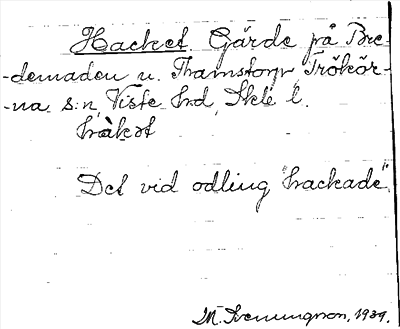 Hacket Gärde på Bre-
-demaden u. Thamstorp, Trökör-
-na s:n, Viste hd, Skk l.
hàkət
Det vid odling "hackade".
M. Svenungsson, 1939.